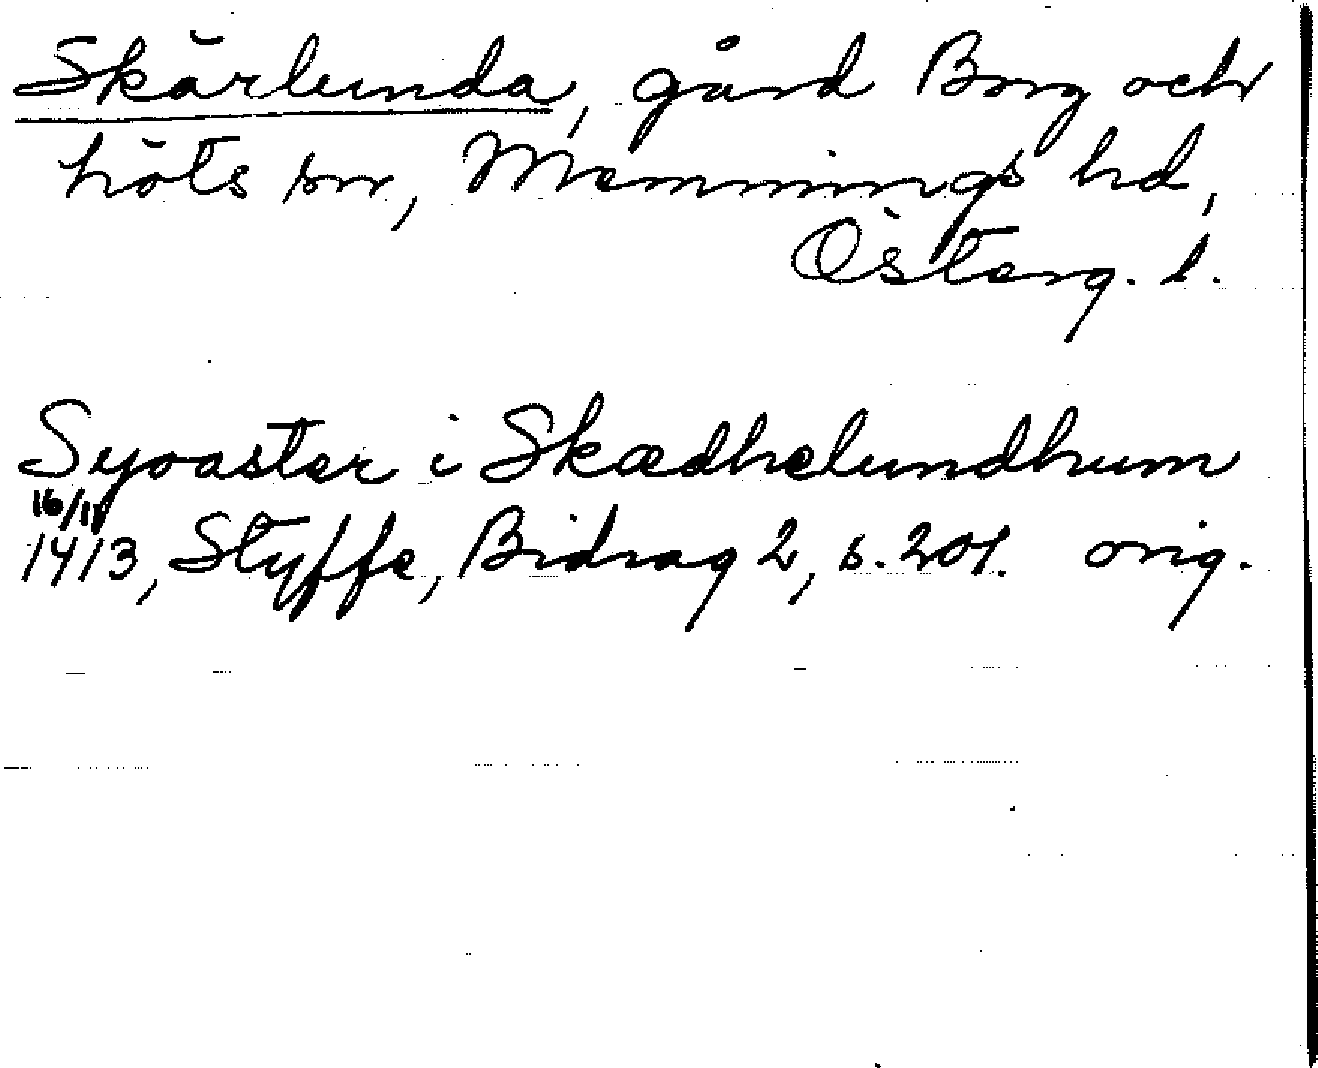 Skärlunda, gård Borg och
Löts snr, Memmings hd,
Österg. l.
Syoaster i Skædhelundhum
16/11
1413, Styffe, Bidrag 2, s. 201. orig.